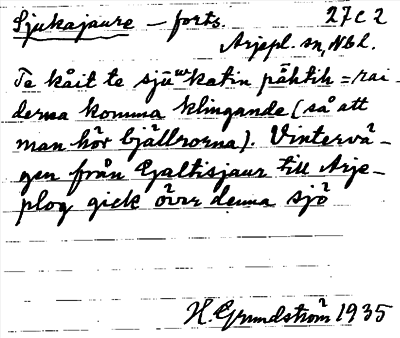 Sjukajaure – forts. 27C2
Arjepl. sn, Nbl.
Te kåit te sjūʷkatin pāhtih = rai-
derna komma klingande (så att
man hör bjällrorna). Vintervä-
gen från Galtisjaur till Arje-
plog gick över denna sjö
H. Grundström 1935